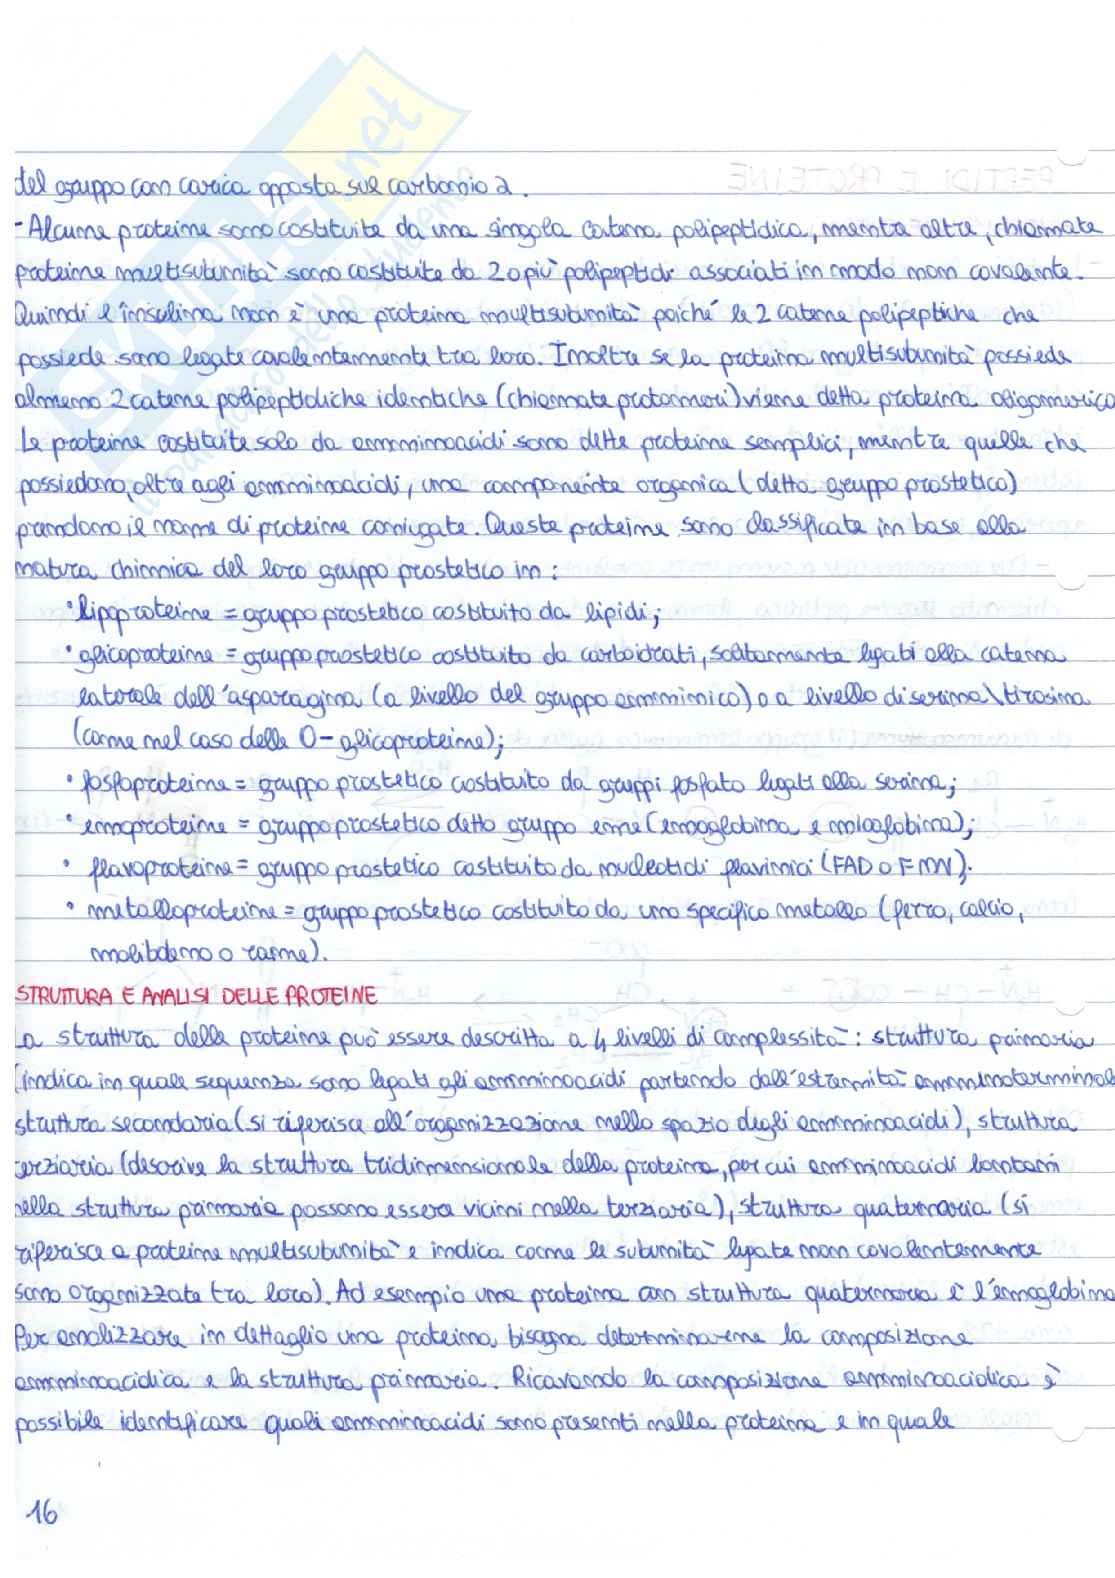 del gruppo con carica opposta sul carbonio 2.
- Alcune proteine sono costituite da una singola catena polipeptidica, mentre altre, chiamate
proteine multisubunità sono costituite da 2 o più polipeptidi associati in modo non covalente.
Quindi l'insulina non è una proteina multisubunità poiché le 2 catene polipeptiche che
possiede sono legate covalentemente tra loro. Inoltre se la proteina multisubunità possiede
almeno 2 catene polipeptidiche identiche (chiamate protomeri) viene detta proteina oligomerica
Le proteine costituite solo da amminoacidi sono dette proteine semplici, mentre quelle che
possiedono, oltre agli amminoacidi, una componente organica (detta gruppo prostetico)
prendono il nome di proteine coniugate. Queste proteine sono classificate in base alla
natura chimica del loro gruppo prostetico in:
• lipoproteine = gruppo prostetico costituito da lipidi;
• glicoproteine = gruppo prostetico costituito da carboidrati, solitamente legati alla catena
laterale dell'asparagina (a livello del gruppo amminico) o a livello di serina\tirosina
(come nel caso delle O-glicoproteine);
• fosfoproteine = gruppo prostetico costituito da gruppi fosfato legati alla serina;
• emoproteine = gruppo prostetico detto gruppo eme (emoglobina e mioglobina);
• flavoproteine = gruppo prostetico costituito da nucleotidi flavinici (FAD o FMN);
• metalloproteine = gruppo prostetico costituito da uno specifico metallo (ferro, calcio,
molibdeno o rame).
STRUTTURA E ANALISI DELLE PROTEINE
La struttura delle proteine può essere descritta a 4 livelli di complessità: struttura primaria
(indica in quale sequenza sono legati gli amminoacidi partendo dall'estremità amminoterminale
struttura secondaria (si riferisce all'organizzazione nello spazio degli amminoacidi), struttura
terziaria (descrive la struttura tridimensionale della proteina, per cui amminoacidi lontani
nella struttura primaria possono essere vicini nella terziaria), struttura quaternaria (si
riferisce a proteine multisubunità e indica come le subunità legate non covalentemente
sono organizzate tra loro). Ad esempio una proteina con struttura quaternaria è l'emoglobina
Per analizzare in dettaglio una proteina bisogna determinarne la composizione
amminoacidica e la struttura primaria. Ricavando la composizione amminoacidica è
possibile identificare quali amminoacidi sono presenti nella proteina e in quale
16
SKUOLA.net
il paradiso dello studente